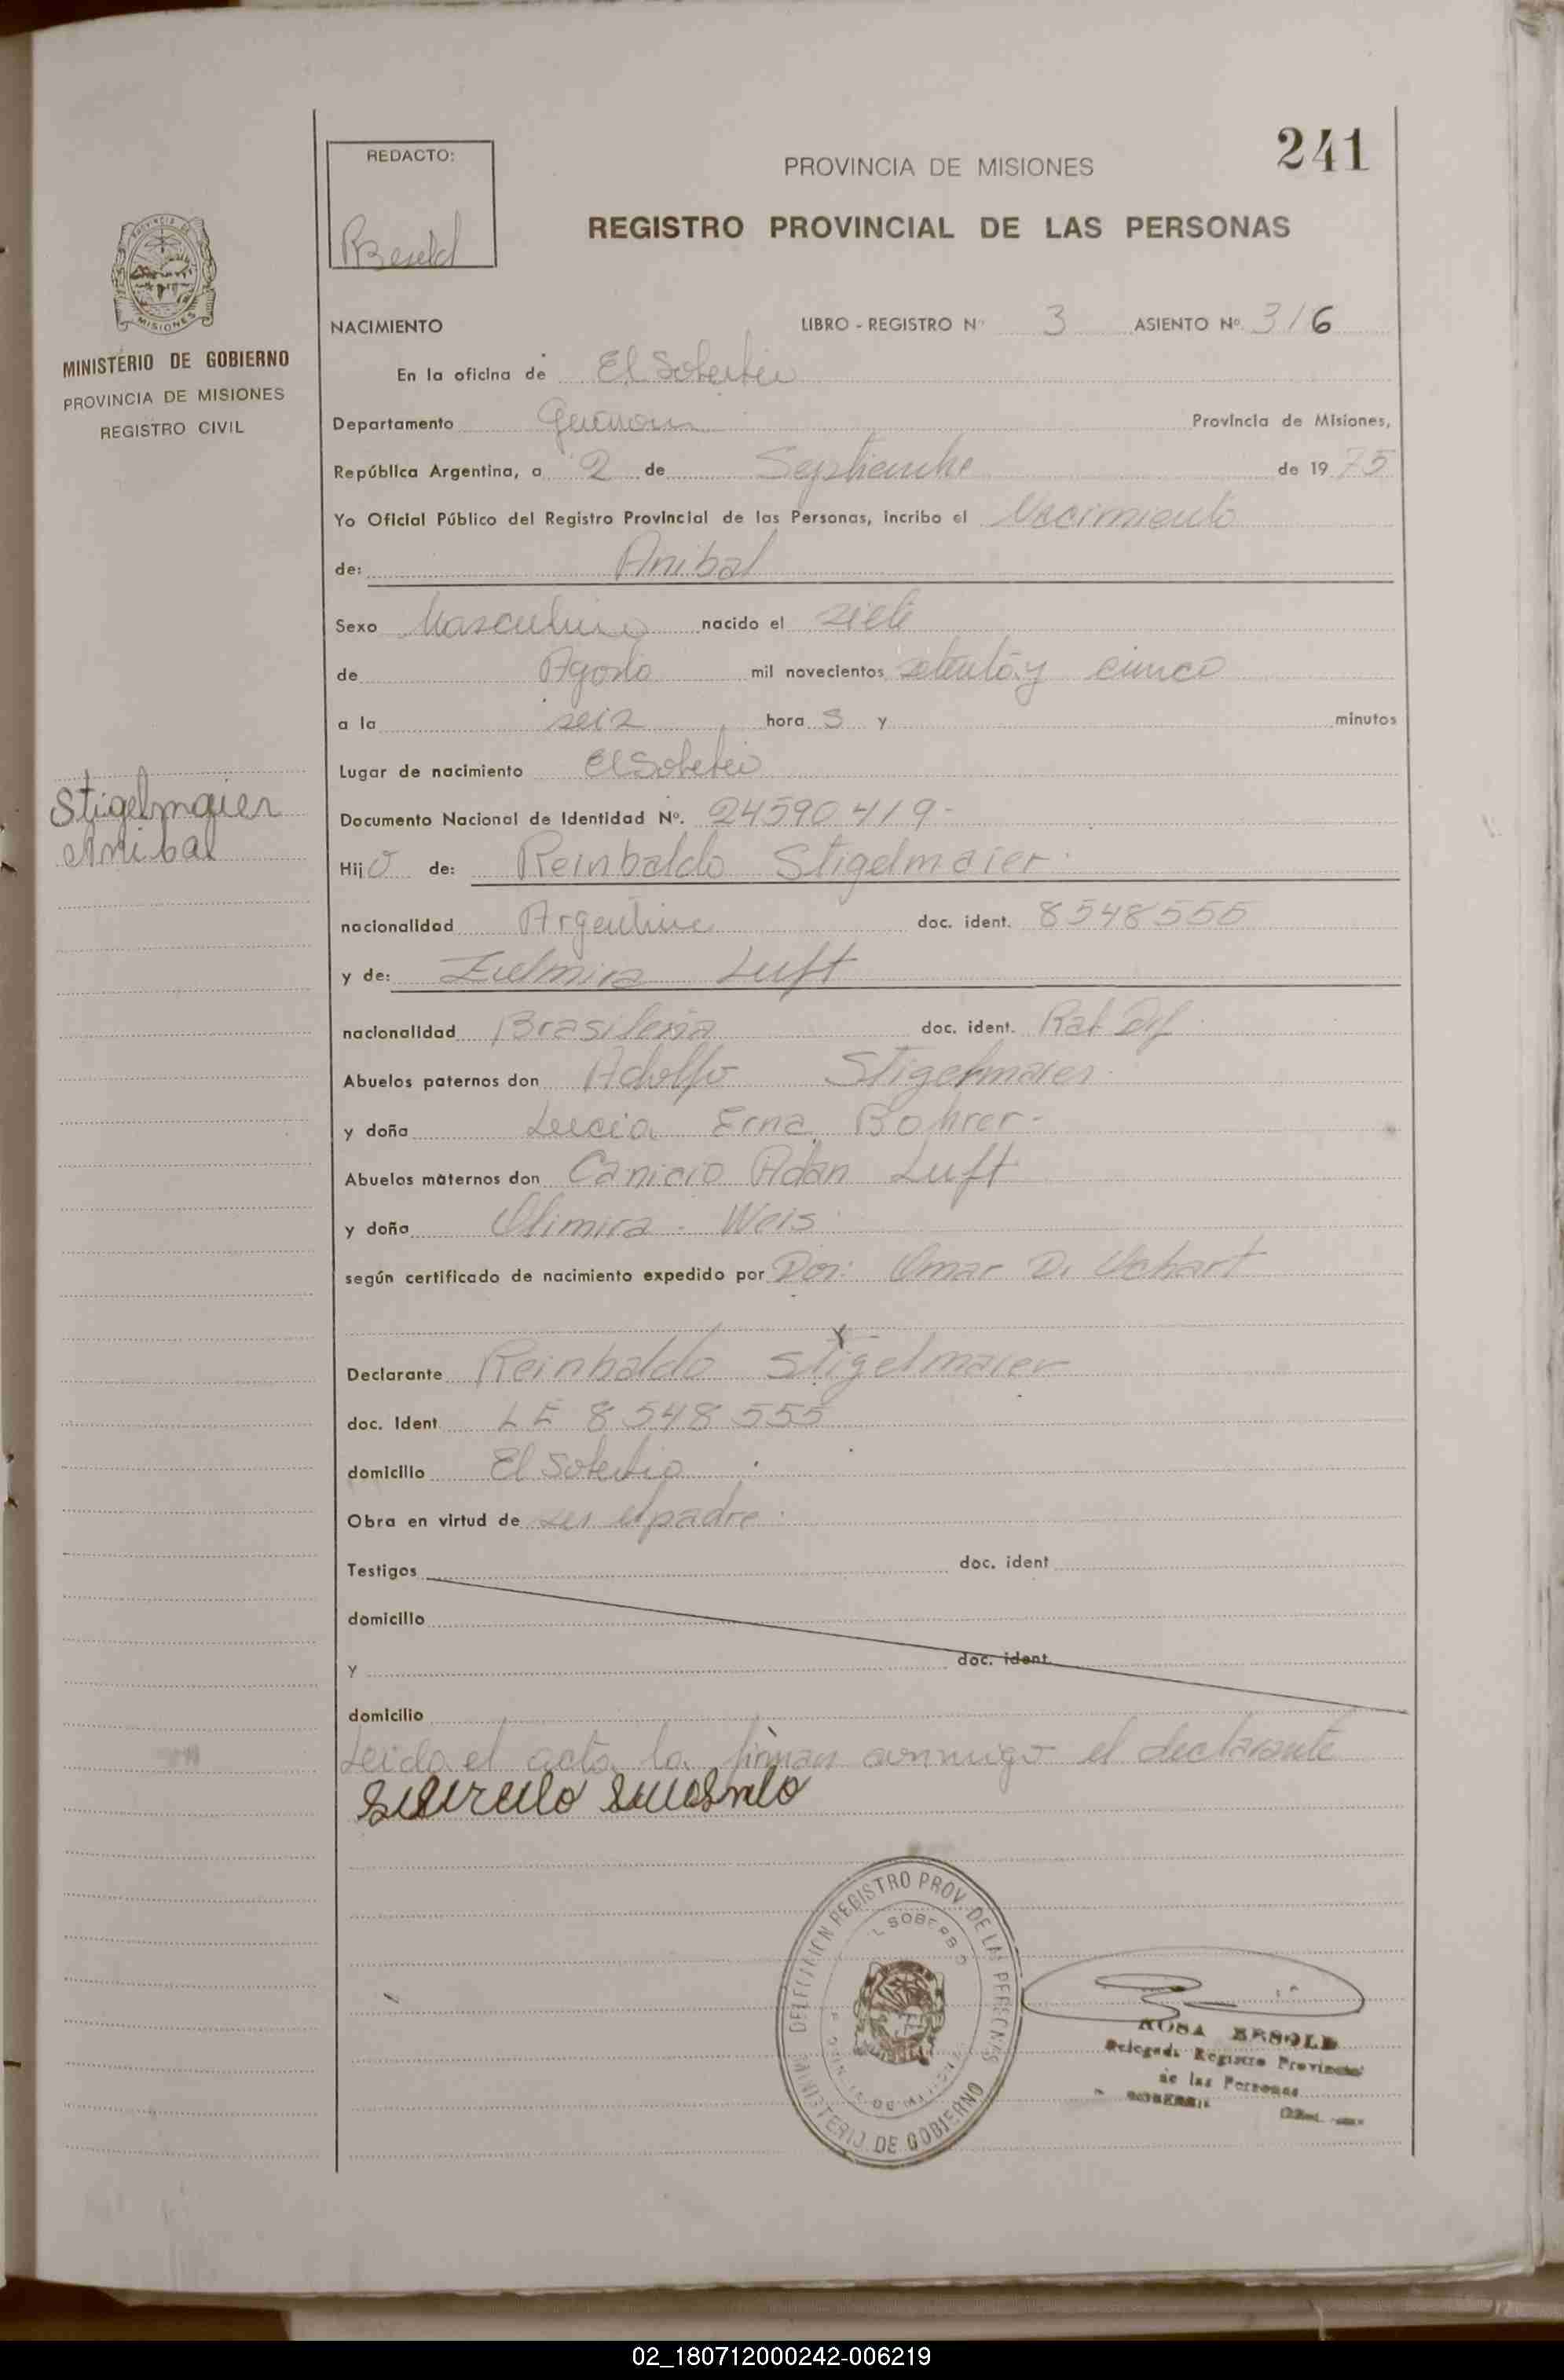 241
REDACTO:
PROVINCIA DE MISIONES
REGISTRO PROVINCIAL DE LAS PERSONAS
MISIONES
MINISTERIO DE GOBIERNO
PROVINCIA DE MISIONES
REGISTRO CIVIL
NACIMIENTO LIBRO - REGISTRO Nº 3 ASIENTO Nº 316
En la oficina de El Soberbio
Departamento Guarani Provincia de Misiones,
República Argentina, a 2 de Septiembre de 1975
Yo Oficial Público del Registro Provincial de las Personas, incribo el Nacimiento
de: Anibal
Sexo Masculino nacido el siete
de Agosto mil novecientos setenta y cinco
a la seis hora s y minutos
Lugar de nacimiento El Soberbio
Stigelmaier
Anibal
Documento Nacional de Identidad Nº. 24590419-
Hijo de: Reinbaldo Stigelmaier
nacionalidad Argentina doc. ident. 8548555
y de: Zulmira Luft
nacionalidad Brasileña doc. ident.
Abuelos paternos don Adolfo Stigelmaier
y doña Lucia Erna Bohrer-
Abuelos maternos don Canicio Adan Luft
y doña Olimira Weis
según certificado de nacimiento expedido por Dor: Omar D.
Declarante Reinbaldo Stigelmaier
doc. Ident. LE 8548555
domicilio El Soberbio
Obra en virtud de ser el padre
Testigos doc. ident
domicilio
y doc. ident.
domicilio
Leida el acta la firman conmigo el declarante
DELEGACION REGISTRO PROV. DE LAS PERSONAS
MINISTERIO DE GOBIERNO
ROSA BESOLD
Delegada Registro Provincial
de las Personas
02_180712000242-006219